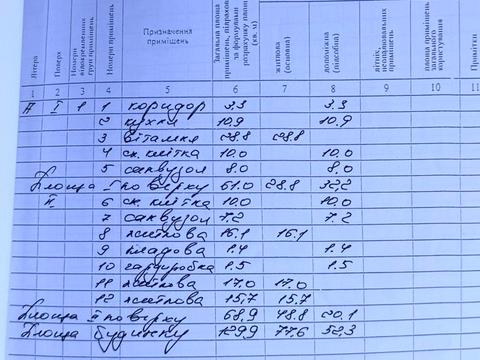 Літера
Поверх
Номери відокремлених груп приміщень
Номери приміщень
Призначення приміщень
Загальна площа приміщень, підрахов за формулами розрахунку площ (кв. м)
житлова (основна)
допоміжна (підсобна)
літніх, неопалювальних приміщень
площа приміщень загального користування
Примітки
1 2 3 4 5 6 7 8 9 10 11
А I 1 1 коридор 3.3 3.3
2 кухня 10.9 10.9
3 вітальня 28.8 28.8
4 сх. клітка 10.0 10.0
5 санвузол 8.0 8.0
Площа I поверху 61.0 28.8 32.2
II 6 сх. клітка 10.0 10.0
7 санвузол 7.2 7.2
8 житлова 16.1 16.1
9 кладова 1.4 1.4
10 гардиробка 1.5 1.5
11 житлова 17.0 17.0
12 житлова 15.7 15.7
Площа II поверху 68,9 48.8 20.1
Площа будинку 129,9 77.6 52,3